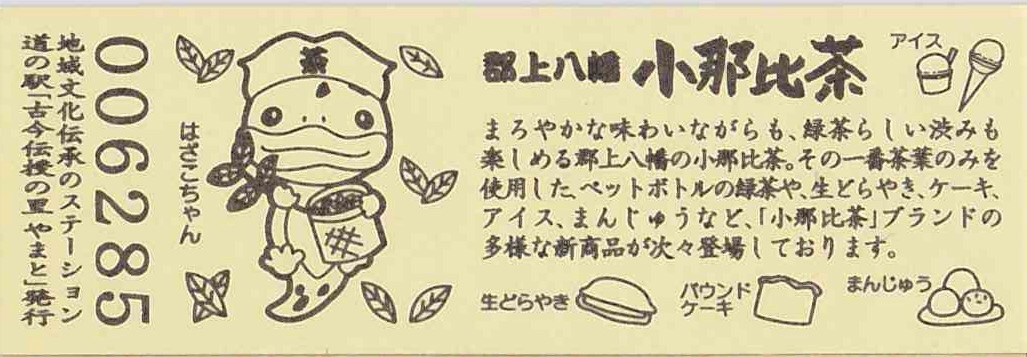 地域文化伝承のステーション
道の駅「古今伝授の里 やまと」発行
006285
はざこちゃん
茶
郡上八幡 小那比茶
まろやかな味わいながらも、緑茶らしい渋みも
楽しめる郡上八幡の小那比茶。その一番茶葉のみを
使用した、ペットボトルの緑茶や、生どらやき、ケーキ、
アイス、まんじゅうなど、「小那比茶」ブランドの
多様な新商品が次々登場しております。
アイス
生どらやき
パウンド
ケーキ
まんじゅう